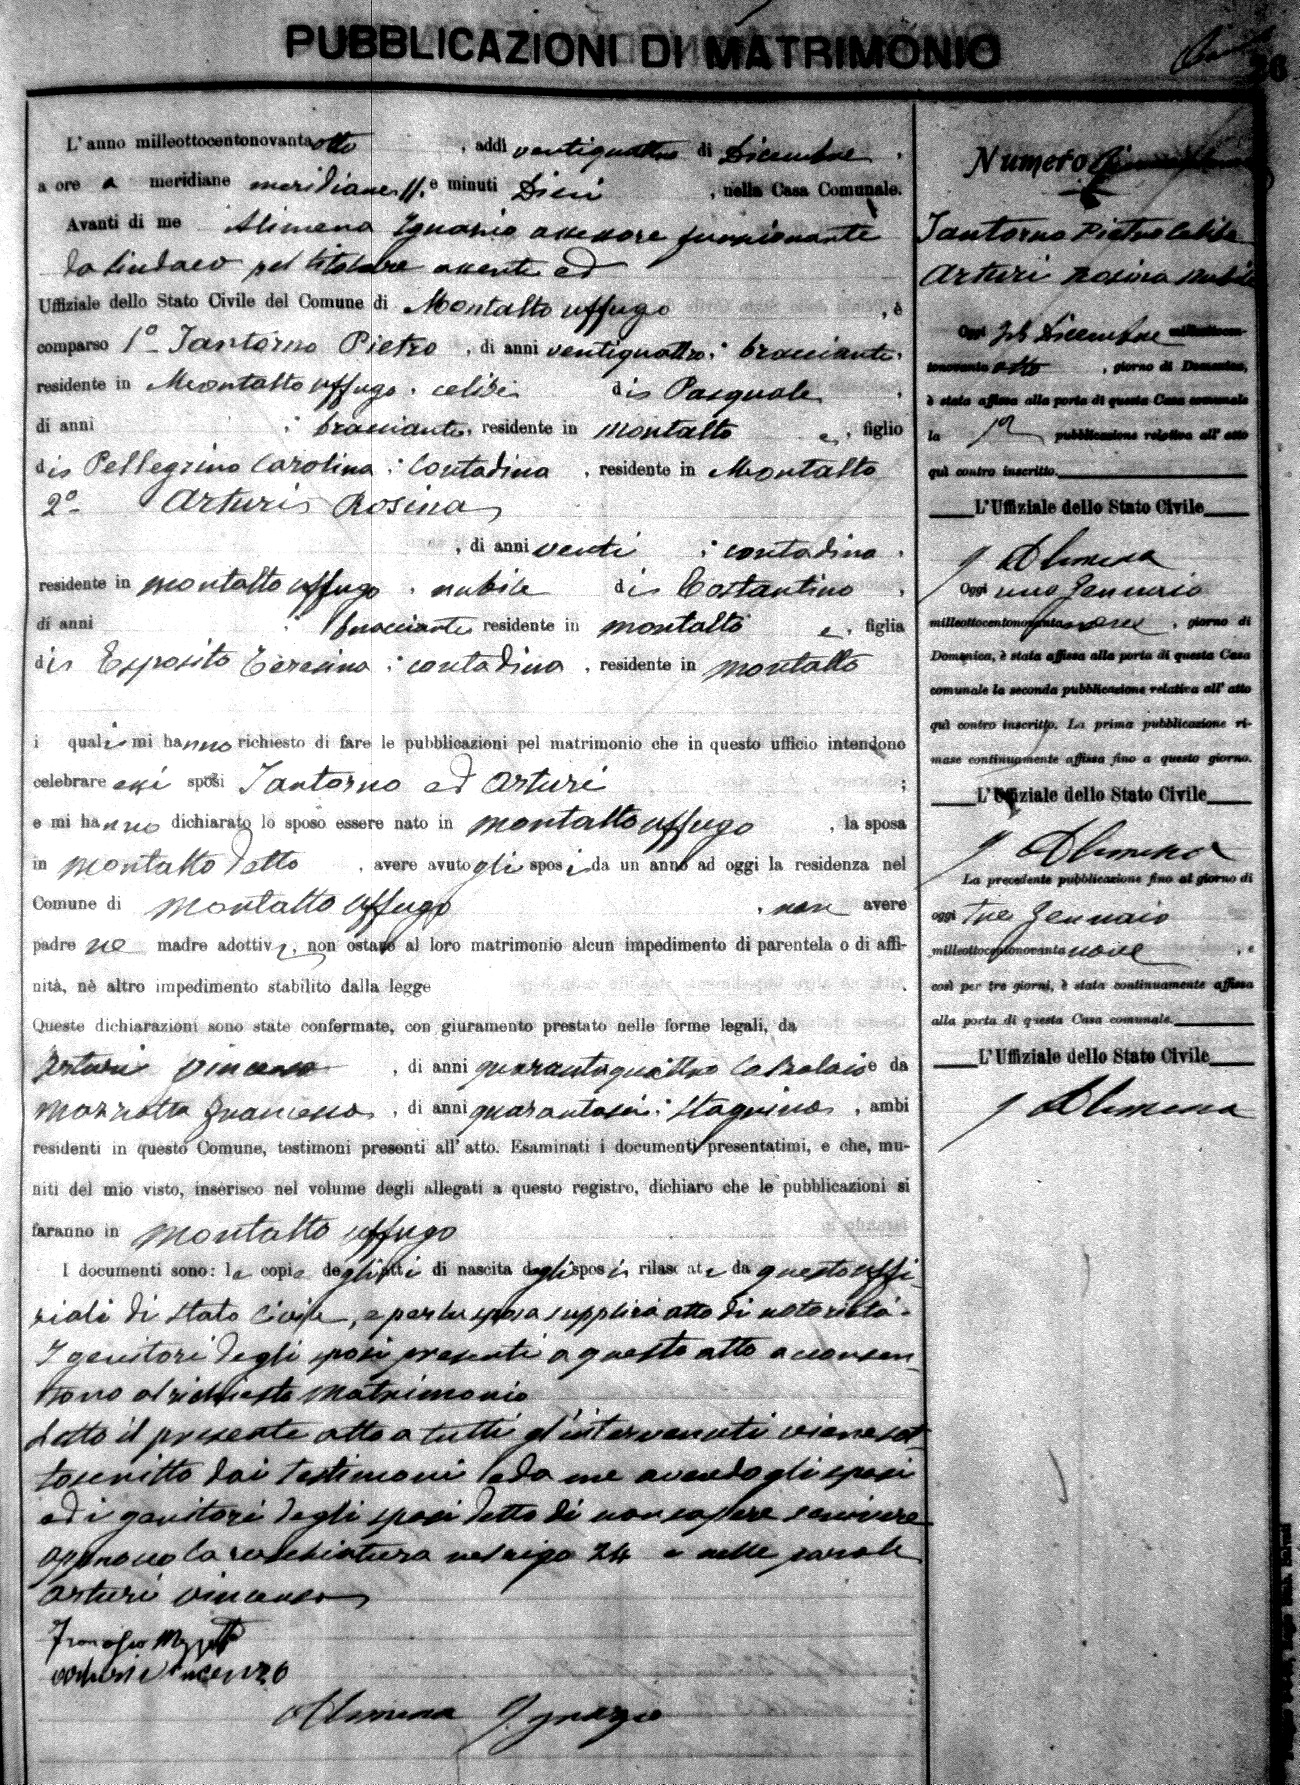 PUBBLICAZIONI DI MATRIMONIO
26
L'anno milleottocentonovantaotto , addì ventiquattro di Dicembre ,
a ore a meridiane meridiane 11. e minuti Dieci , nella Casa Comunale.
Avanti di me Alimena Ignazio assessore funzionante
da Sindaco pel titolare assente ed
Uffiziale dello Stato Civile del Comune di Montalto Uffugo , è
comparso 1º Santorno Pietro , di anni ventiquattro ; bracciante ,
residente in Montalto Uffugo . celibe di Pasquale ,
di anni ; bracciante , residente in Montalto e , figlio
di Pellegrino Carolina ; contadina , residente in Montalto
2º Arturi Rosina
, di anni venti ; contadina ,
residente in Montalto Uffugo . nubile di Costantino ,
di anni ; bracciante residente in Montalto e , figlia
di Esposito Teresina ; contadina , residente in Montalto
i quali mi hanno richiesto di fare le pubblicazioni pel matrimonio che in questo ufficio intendono
celebrare essi sposi Santorno ed Arturi ;
e mi hanno dichiarato lo sposo essere nato in Montalto Uffugo , la sposa
in Montalto detto , avere avuto gli sposi da un anno ad oggi la residenza nel
Comune di Montalto Uffugo , non avere
padre ne madre adottivi, non ostare al loro matrimonio alcun impedimento di parentela o di affi-
nità, nè altro impedimento stabilito dalla legge
Queste dichiarazioni sono state confermate, con giuramento prestato nelle forme legali, da
Arturi Vincenzo , di anni quarantaquattro e da
Mazzotta Francesco , di anni quarantasei ; stagnino , ambi
residenti in questo Comune, testimoni presenti all'atto. Esaminati i documenti presentatimi, e che, mu-
niti del mio visto, inserisco nel volume degli allegati a questo registro, dichiaro che le pubblicazioni si
faranno in Montalto Uffugo
I documenti sono: le copie degli atti di nascita degli sposi rilasciate da questo uffi
ziale di Stato Civile, e per la sposa supplirà atto di notorietà.
I genitori degli sposi presenti a questo atto acconsen
tono al richiesto matrimonio
Letto il presente atto a tutti gl'intervenuti viene sot
toscritto dai testimoni e da me avendo gli sposi
ed i genitori degli sposi detto di non sapere scrivere
Approvo la raschiatura nel rigo 24 e nelle parole
Arturi Vincenzo
Francesco Mazzotta
Arturi Vincenzo
Alimena Ignazio
Numero
Santorno Pietro celibe
Arturi Rosina nubile
Oggi Dicembre milleottocen-
tonovantaotto , giorno di Domenica,
è stata affissa alla porta di questa Casa comunale
la 1ª pubblicazione relativa all'atto
quì contro inscritto.
L'Uffiziale dello Stato Civile
I Alimena
Oggi uno Gennaio
milleottocentonovantanove , giorno di
Domenica, è stata affissa alla porta di questa Casa
comunale la seconda pubblicazione relativa all'atto
quì contro inscritto. La prima pubblicazione ri-
mase continuamente affissa fino a questo giorno.
L'Uffiziale dello Stato Civile
I Alimena
La precedente pubblicazione fino al giorno di
oggi tre Gennaio
milleottocentonovantanove , e
così per tre giorni, è stata continuamente affissa
alla porta di questa Casa comunale.
L'Uffiziale dello Stato Civile
I Alimena